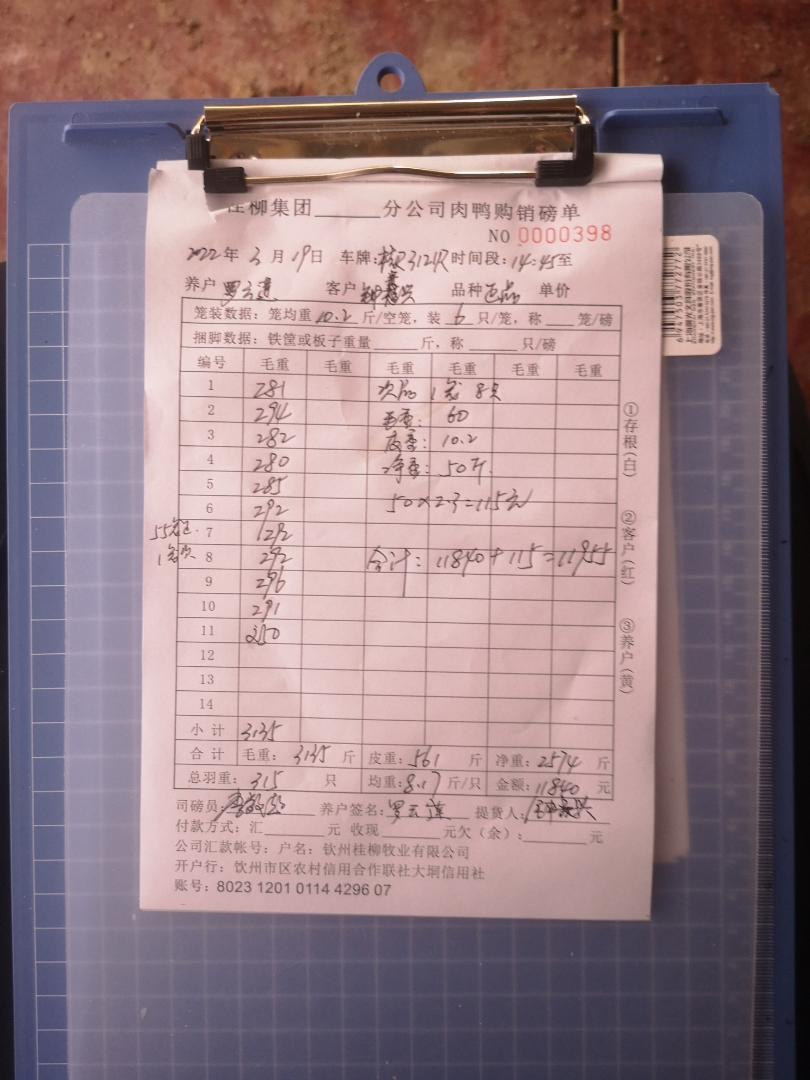 柳集团______分公司肉鸭购销磅单
NO 0000398
2022年 3月19日 车牌: 312 时间段: 14:45至
养户 罗云莲 客户 品种 正品 单价
笼装数据: 笼均重 10.2 斤/空笼, 装 6 只/笼, 称____笼/磅
捆脚数据: 铁筐或板子重量____斤, 称____只/磅
编号 毛重 毛重 毛重 毛重 毛重 毛重
1 281 次品 1笼 8只
2 294 毛重: 60
3 282 皮重: 10.2
4 280 净重: 50斤.
5 285
6 292 50×2.3=115元
55笼正. 7 292
1笼次 8 292 合计: 11840+115=11955
9 296
10 291
11
12
13
14
小计 3135
合计 毛重: 3135 斤 皮重: 561 斤 净重: 2574 斤
总羽重: 315 只 均重: 8.17 斤/只 金额: 11840 元
司磅员: 养户签名: 罗云莲 提货人:
付款方式: 汇______元 收现______元欠(余):______元
公司汇款帐号: 户名: 钦州桂柳牧业有限公司
开户行: 钦州市区农村信用合作联社大垌信用社
账号: 8023 1201 0114 4296 07
①存根(白)
②客户(红)
③养户(黄)
6947503772772